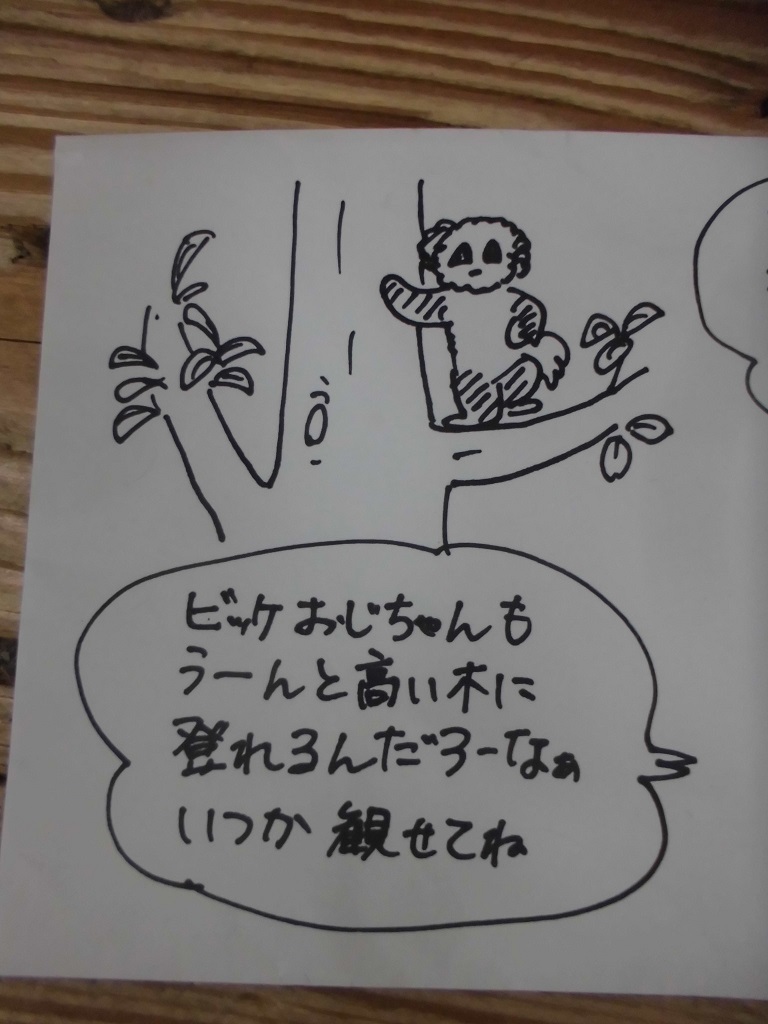 ビッケおじちゃんも
うーんと高い木に
登れるんだろーなぁ
いつか観せてね